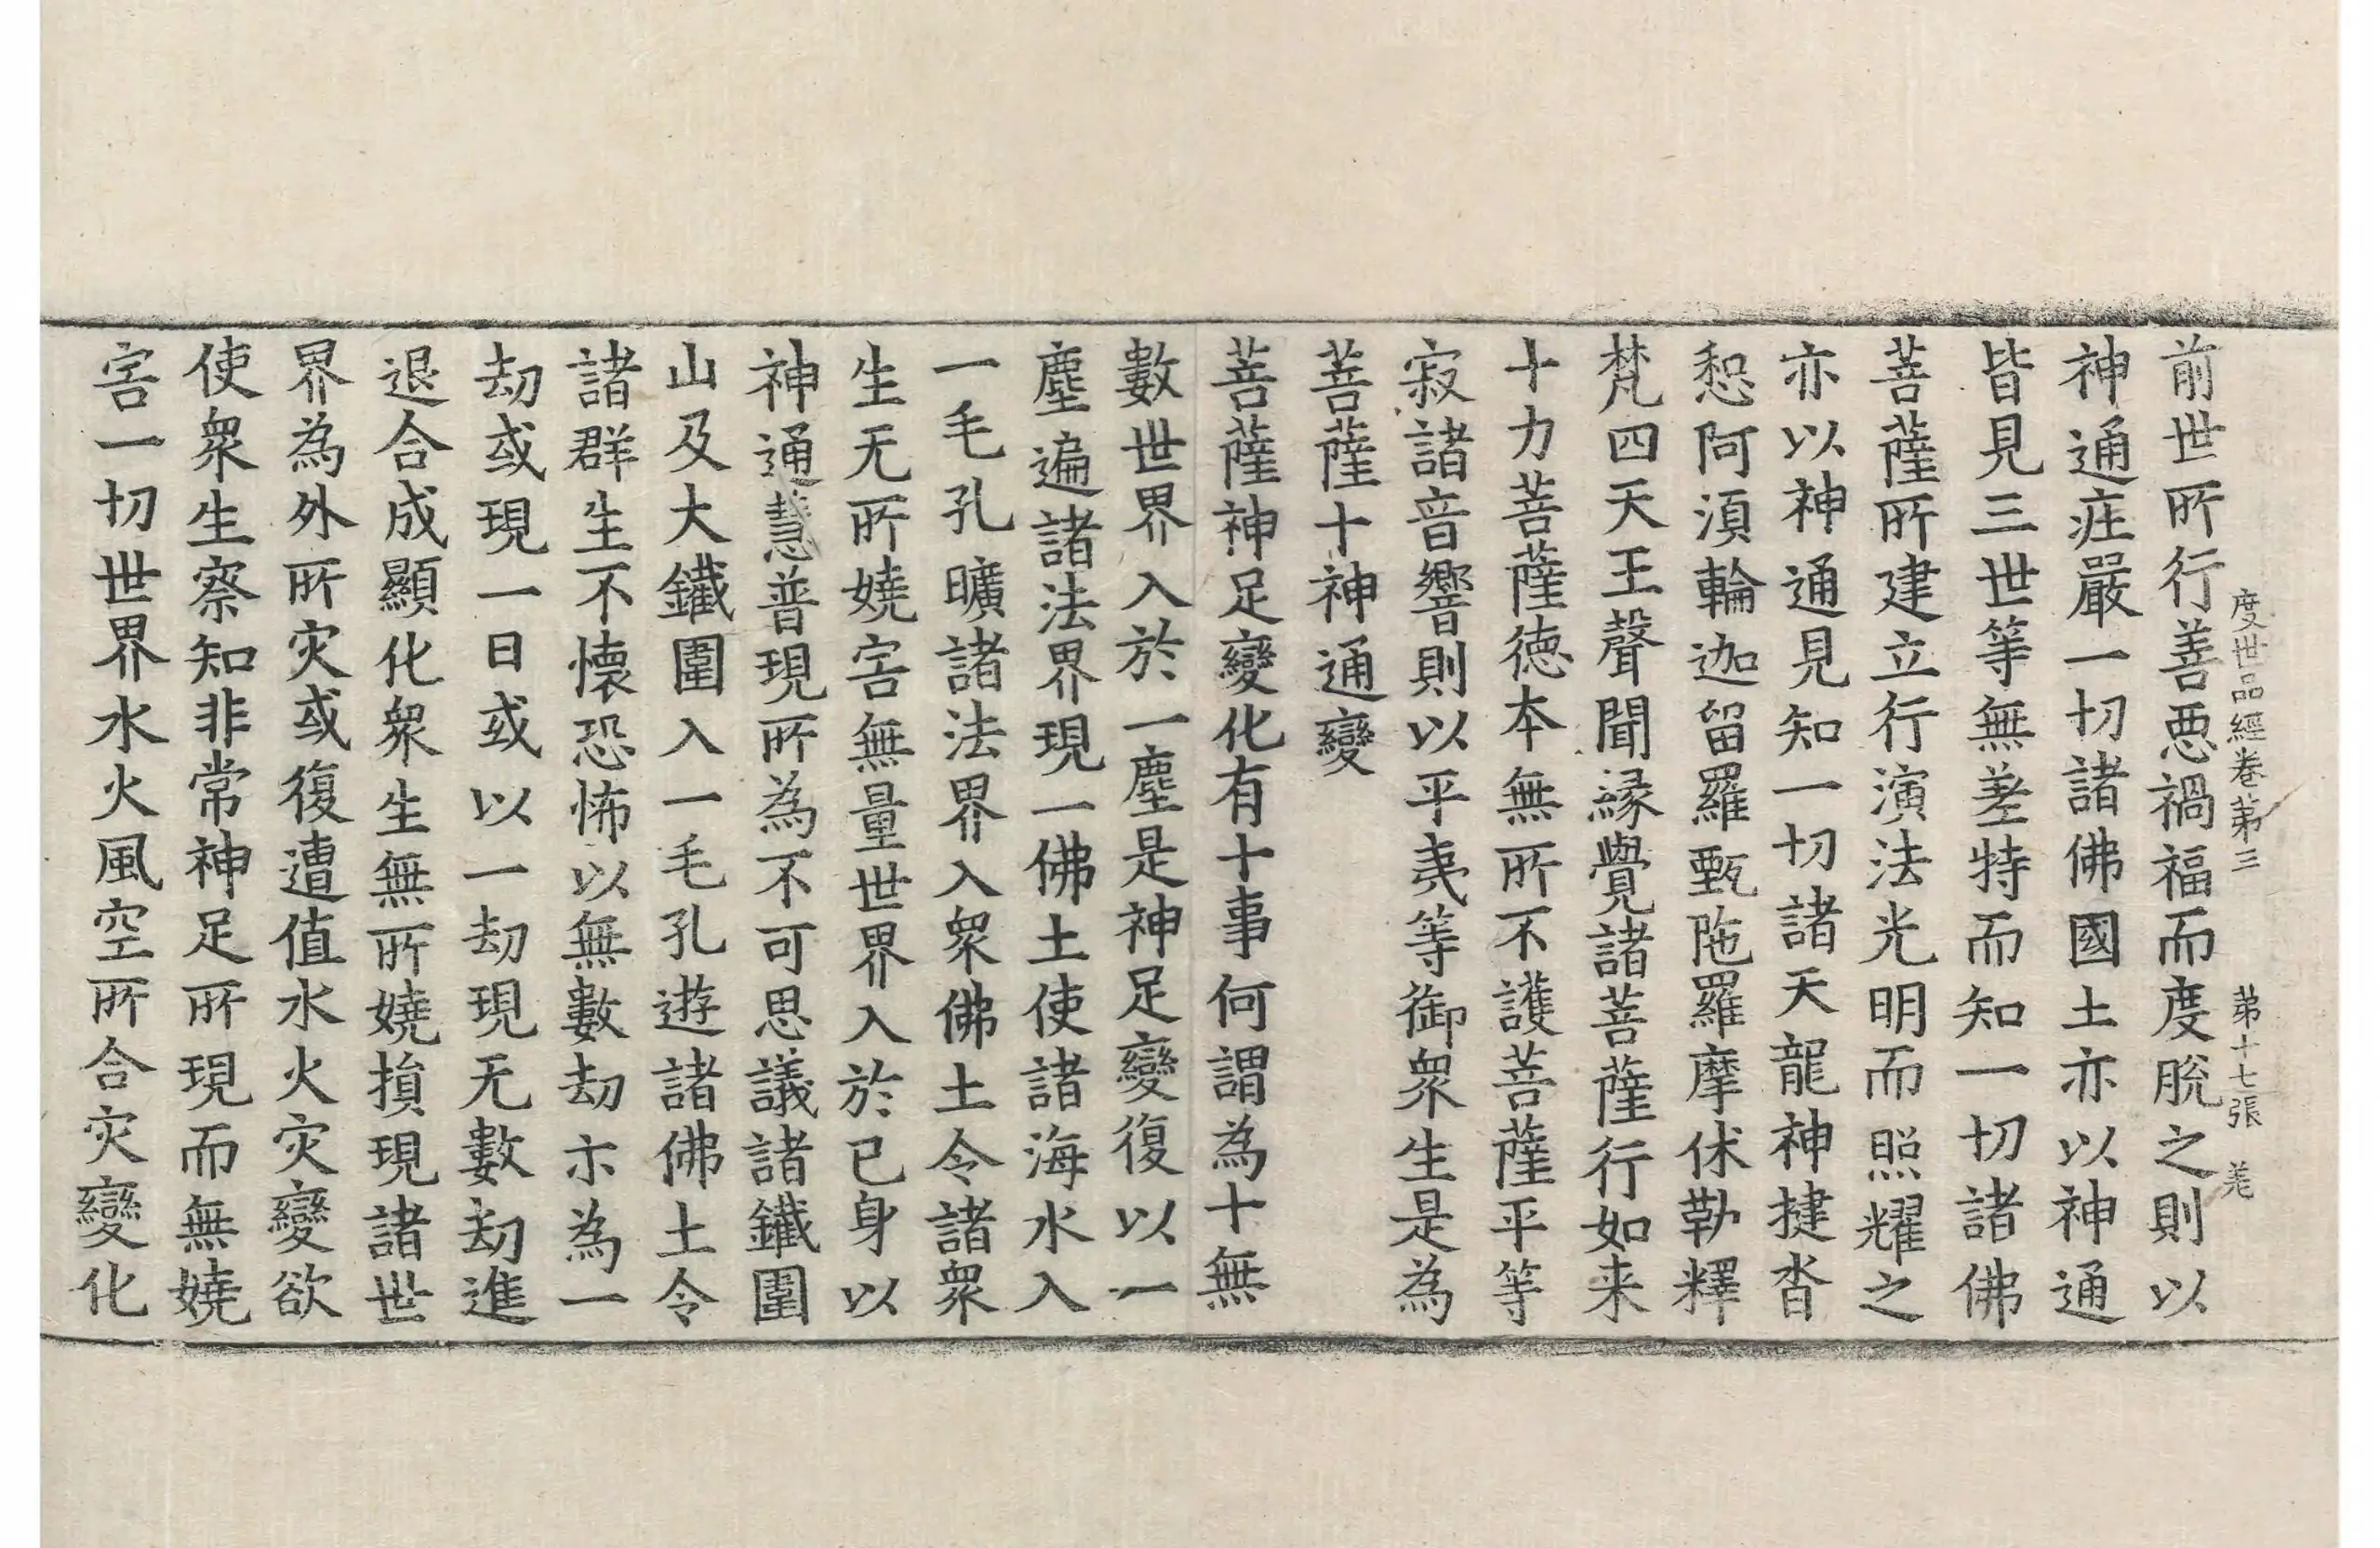 度世品經卷第三　第十七張　羌
前世所行善惡禍福而度脫之則以
神通莊嚴一切諸佛國土亦以神通
皆見三世等無差特而知一切諸佛
菩薩所建立行演法光明而照耀之
亦以神通見知一切諸天龍神揵沓
惒阿湏輪迦留羅甄陁羅摩休勒釋
梵四天王聲聞緣覺諸菩薩行如来
十力菩薩德本無所不護菩薩平等
寂諸音響則以平夷等御衆生是為
菩薩十神通變
菩薩神足變化有十事何謂為十無
數世界入於一塵是神足變復以一
塵遍諸法界現一佛土使諸海水入
一毛孔曠諸法界入衆佛土令諸衆
生无所嬈害無量世界入於已身以
神通慧普現所為不可思議諸鐵圍
山及大鐵圍入一毛孔遊諸佛土令
諸群生不懷恐怖以無數劫亦為一
劫或現一日或以一劫現无數劫進
退合成顯化衆生無所嬈損現諸世
界為外所灾或復遭值水火灾變欲
使衆生察知非常神足所現而無嬈
害一切世界水火風空所合灾變化